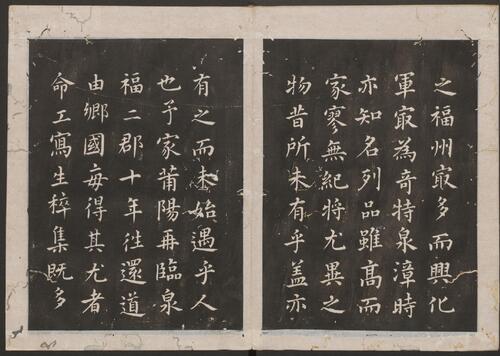 之福州㝡多而興化
軍㝡為奇特泉漳時
亦知名列品雖髙而
家寥無紀將尤異之
物昔所未有乎盖亦
有之而未始遇乎人
也予家莆陽再臨泉
福二郡十年往還道
由鄉國每得其尤者
命工寫生稡集既多